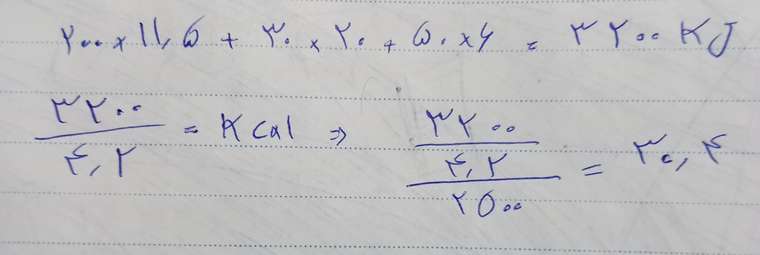 ۲۰۰ × ۱۱,۵ + ۳۰ × ۲۰ + ۵۰ × ۶ = ۳۲۰۰ KJ
۳۲۰۰ / ۴,۲ = Kcal ⇒ ۳۲۰۰ / ۴,۲ / ۲۵۰۰ = ۳۰,۴